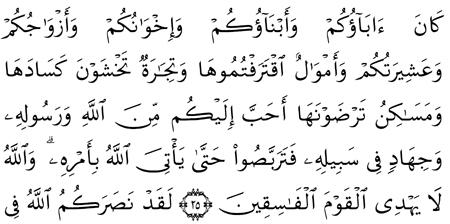 كَانَ ءَابَآؤُكُمْ وَأَبْنَآؤُكُمْ وَإِخْوَٰنُكُمْ وَأَزْوَٰجُكُمْ
وَعَشِيرَتُكُمْ وَأَمْوَٰلٌ ٱقْتَرَفْتُمُوهَا وَتِجَٰرَةٌ تَخْشَوْنَ كَسَادَهَا
وَمَسَٰكِنُ تَرْضَوْنَهَآ أَحَبَّ إِلَيْكُم مِّنَ ٱللَّهِ وَرَسُولِهِۦ
وَجِهَادٍ فِى سَبِيلِهِۦ فَتَرَبَّصُوا۟ حَتَّىٰ يَأْتِىَ ٱللَّهُ بِأَمْرِهِۦ ۗ وَٱللَّهُ
لَا يَهْدِى ٱلْقَوْمَ ٱلْفَٰسِقِينَ ﴿٢٥﴾ لَقَدْ نَصَرَكُمُ ٱللَّهُ فِى